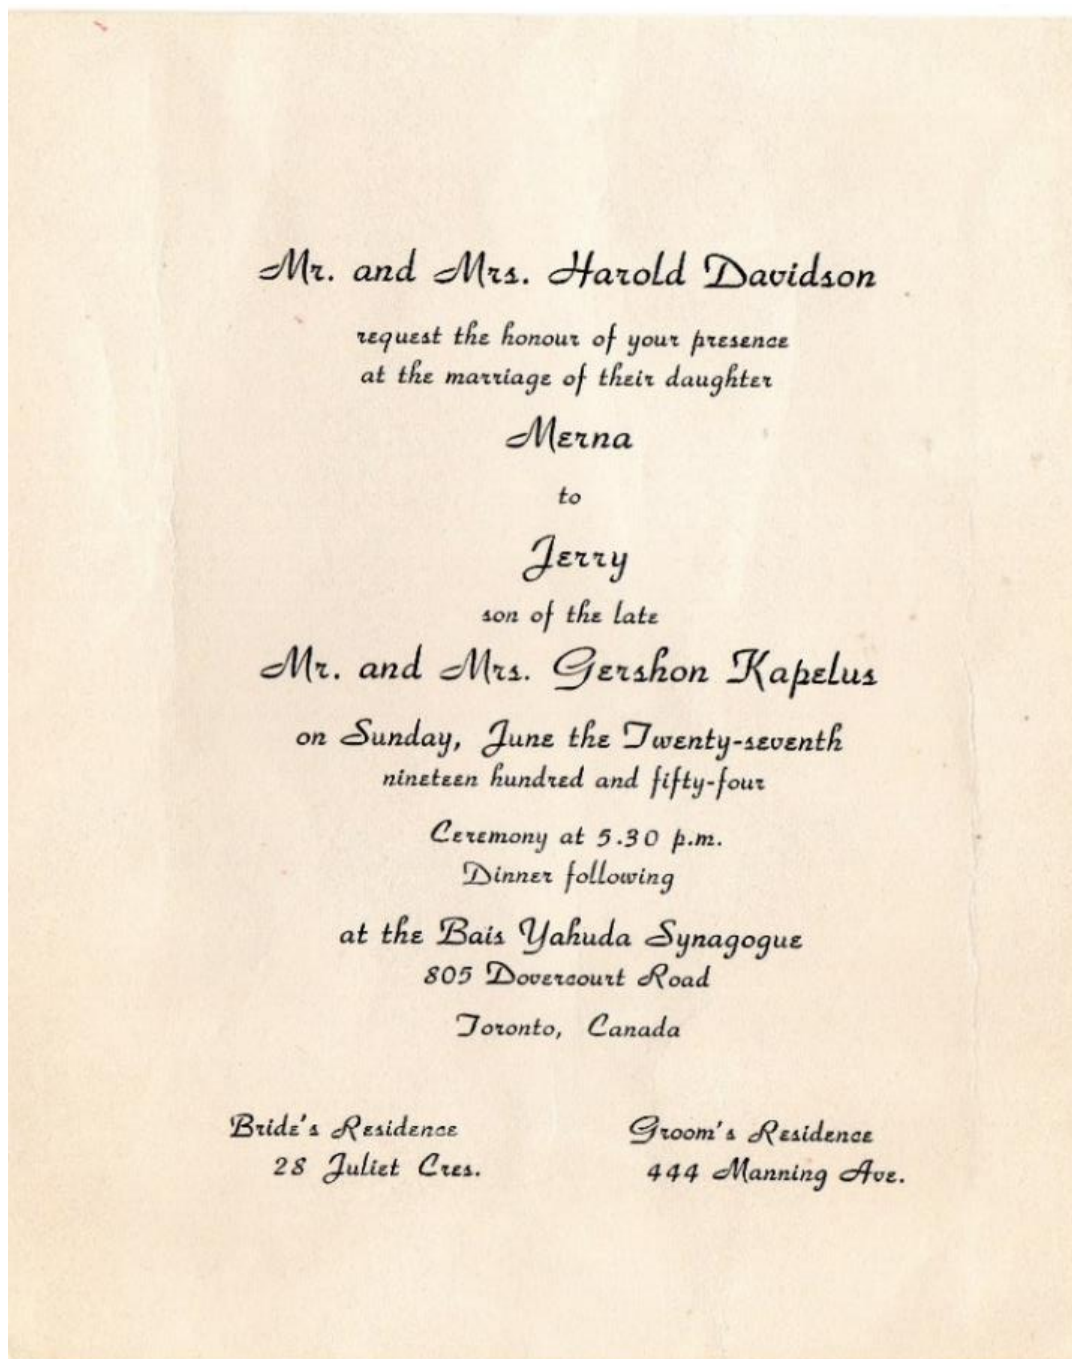 Mr. and Mrs. Harold Davidson
request the honour of your presence
at the marriage of their daughter
Merna
to
Jerry
son of the late
Mr. and Mrs. Gershon Kapelus
on Sunday, June the Twenty-seventh
nineteen hundred and fifty-four
Ceremony at 5.30 p.m.
Dinner following
at the Bais Yahuda Synagogue
805 Dovercourt Road
Toronto, Canada
Bride's Residence
28 Juliet Cres.
Groom's Residence
444 Manning Ave.